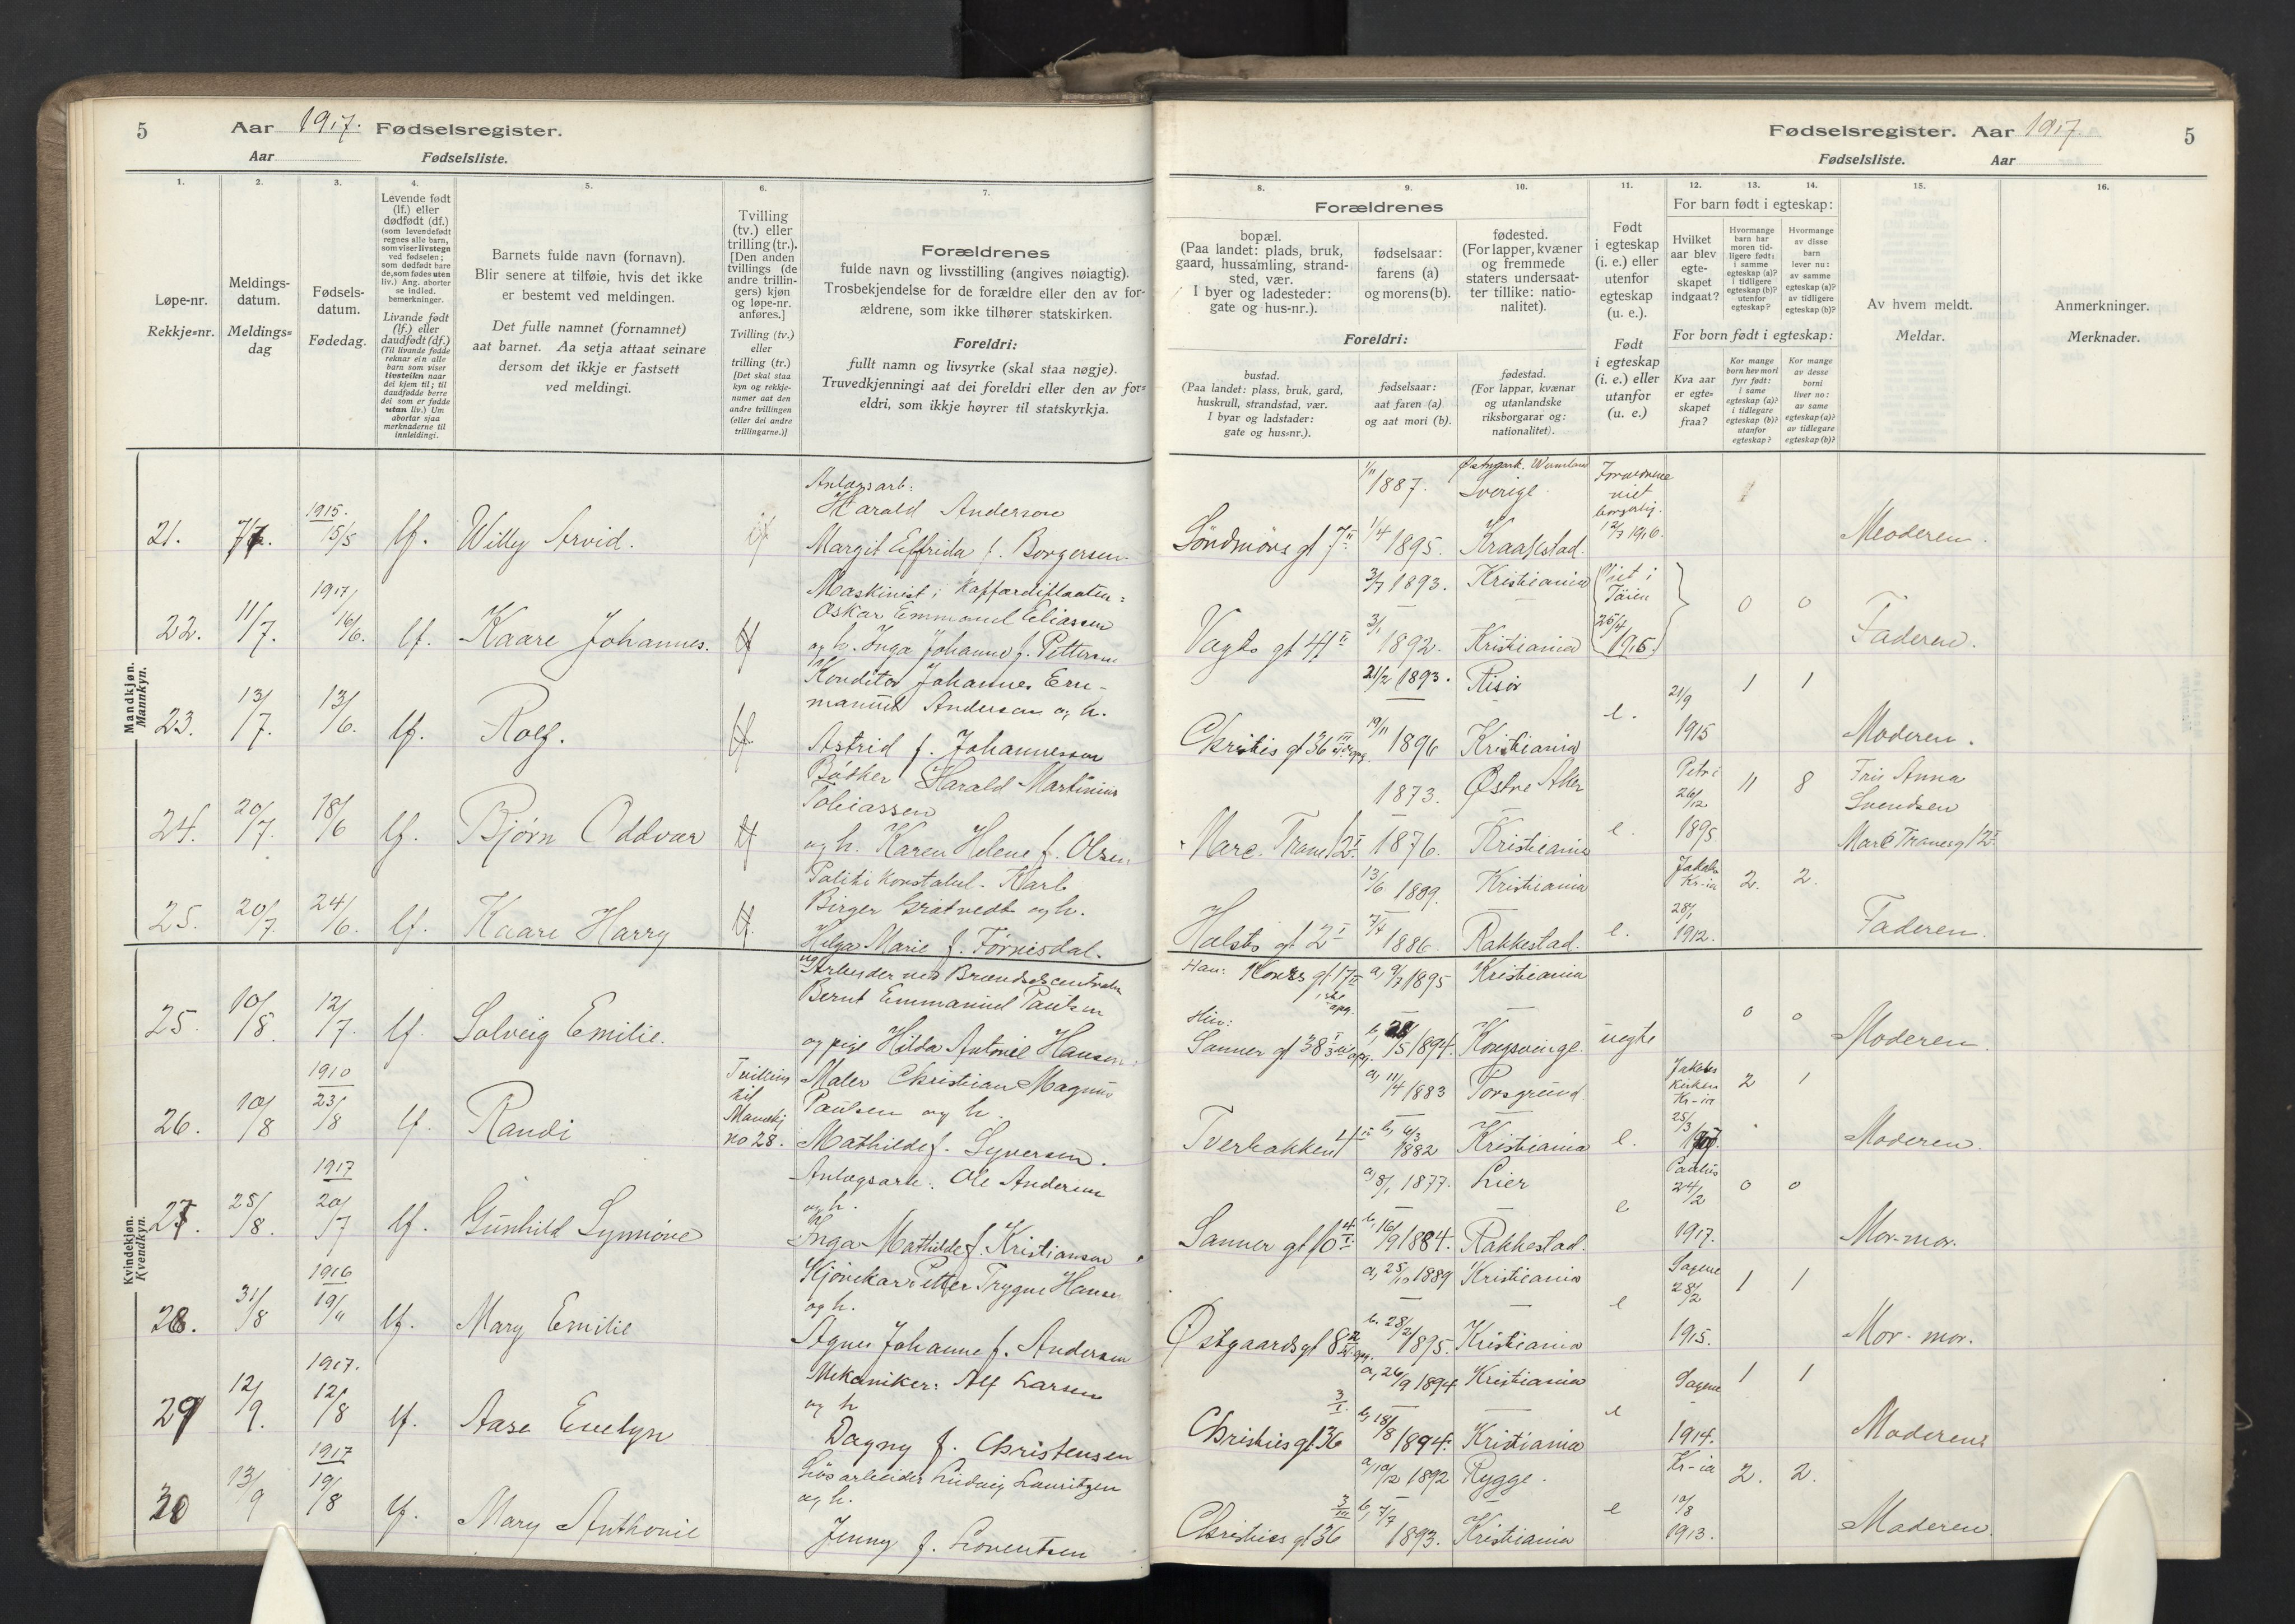 5 Aar 1917. Fødselsregister.
Aar Fødselsliste.
1. 2. 3. 4. 5. 6. 7.
Løpe-nr.
Rekkje=nr.
Meldings-
datum.
Meldings=
dag
Fødsels-
datum.
Fødedag.
Levende født
(lf.) eller
dødfødt (df.)
(som levendefødt
regnes alle barn,
som viser livstegn
ved fødselen;
som dødfødt bare
de, som fødes uten
liv.) Ang. aborter
se indled.
bemerkninger.
Livande født
(lf.) eller
daudfødt (df.)
(Til livande fødde
reknar ein alle
barn som viser
livsteikn naar
dei kjem til; til
daudfødde berre
dei som er fødde
utan liv.) Um
abortar sjaa
merknaderne til
innleidingi.
Barnets fulde navn (fornavn).
Blir senere at tilføie, hvis det ikke
er bestemt ved meldingen.
Det fulle namnet (fornamnet)
aat barnet. Aa setja attaat seinare
dersom det ikkje er fastsett
ved meldingi.
Tvilling
(tv.) eller
trilling (tr.).
[Den anden
tvillings (de
andre trillin-
gers) kjøn
og løpe-nr.
anføres.]
Tvilling (tv.)
eller
trilling (tr.)
[Det skal staa
kyn og rekkje-
numer aat den
andre tvillingen
(eller dei andre
trillingarne.)]
Forældrenes
fulde navn og livsstilling (angives nøiagtig).
Trosbekjendelse for de forældre eller den av for-
ældrene, som ikke tilhører statskirken.
Foreldri:
fullt namn og livsyrke (skal staa nøgje).
Truvedkjenningi aat dei foreldri eller den av for=
eldri, som ikkje høyrer til statskyrkja.
Mandkjøn.
Mannkyn.
Anlægsarb:
Harald Anderson
21. 7/7. 1915. 15/5 lf. Willy Arvid.
Margit Elfrida f. Borgersen
Maskinist i Kaffardiflaaten:
Oskar Emmanuel Eliassen
22. 11/7. 1917 16/6. lf. Kaare Johannes.
og h. Inga Johanne f. Petterson
Konditor Johannes Em-
manuel Anderson og h.
23. 13/7. 13/6. lf. Rolf.
Astrid f. Johannesson
Bødker Harald Martinius
Tobiassen
24. 20/7. 18/6 lf. Bjørn Oddvar
og h. Karen Helene f. Olsen
Politikonstabel - Karl
Birger Gratvedt og h.
25. 20/7. 24/6. lf. Kaare Harry
Helga Marie f. Tørrisdal.
Kvindekjøn.
Kvendkyn.
Arbeider ved Brændselscentralen
Bernt Emmanuel Paulsen
25. 10/8. 12/7. lf. Solveig Emilie.
og pige Hilda Antonie Hansen
Maler Christian Magnus
Paulsen og h.
26. 10/8 1910 23/8 lf. Randi
Tvilling
til
Mandkj
no 28.
Mathilde f. Syversen.
Anlægsarb: Ole Andersen
og h.
27. 25/8. 1917 20/7 lf. Gunhild Synnøve
Inga Mathilde f. Kristiansen
Kjørekar Petter Trygve Hansen
og h.
28. 31/8 1916 19/11 lf. Mary Emilie
Agnes Johanne f. Andersen
Mekaniker: Alf Larsen
og h
29 12/9. 1917. 12/8 lf. Aase Evelyn
Dagny f. Christensen
Løsarbeider Ludvig Lauritzen
og h.
30 13/9 1917 19/8 lf. Mary Anthonie
Jenny f. Lorentsen
Fødselsregister. Aar 1917. 5
Fødselsliste. Aar
8. 9. 10. 11. 12. 13. 14. 15. 16.
Forældrenes
bopæl.
(Paa landet: plads, bruk,
gaard, hussamling, strand-
sted, vær.
I byer og ladesteder:
gate og hus-nr.).
fødselsaar:
farens (a)
og morens (b).
fødested.
(For lapper, kvæner
og fremmede
staters undersaat-
ter tillike: natio-
nalitet).
Foreldri:
bustad.
(Paa landet: plass, bruk, gard,
huskrull, strandstad, vær.
I byar og ladstader:
gate og hus=nr.).
fødselsaar:
aat faren (a)
og aat mori (b).
fødestad.
(For lappar, kvænar
og utanlandske
riksborgarar og:
nationalitet).
Født
i egteskap
(i. e.) eller
utenfor
egteskap
(u. e.).
Født
i egteskap
(i. e.) eller
utanfor
egteskap
(u. e.)
For barn født i egteskap:
Hvilket
aar blev
egte-
skapet
indgaat?
Hvormange
barn har
moren tid-
ligere født:
i samme
egteskap (a)?
i tidligere
egteskap (b)?
utenfor
egteskap?
Hvormange
av disse
barn
lever nu:
av samme
egteskap (a)?
av tidligere
egteskap (b)?
For born født i egteskap:
Kva aar
er egte=
skapet
fraa?
Kor mange
born hev mori
fyrr født:
i same
egteskap (a)?
i tidlegare
egteskap (b)?
utanfor
egteskap?
Kor mange
av desse
borni
liver no:
av same
egteskap (a)?
av tidlegare
egteskap (b)?
Av hvem meldt.
Meldar.
Anmerkninger.
Merknader.
1/11 1887. Sverige.
Forældrene
viet
borgerlig.
12/7 1916.
Söndmörs gt 7 II 1/4 1895. Kraakstad. Moderen.
3/7 1893. Kristiania Viet i
Tøien
25/4
1916.
0 0
Vogts gt 41 II 3/1 1892. Kristiania Faderen.
21/2 1893. Risør 21/9 1 1
Christies gt 36 III 19/11 1896 Kristiania e. 1915 Moderen.
1873. Østre Aker Petri
26/12
11 8 Fru Anna
Svendsen
Marc. Trane 12 I 1876. Kristiania e. 1895 Marc Tranes gt 12 I
13/6 1889. Kristiania Jakobs
Kr-ia
2. 2.
Holsts gt 2 I 7/4 1886. Rakkestad. e. 28/1
1912.
Faderen.
Han: Kors gt 17 II a, 9/7 1895 Kristiania
0 0
Hun:
Sanner gt 38 b, 15 1894. Kongsvinge. uegte Moderen
a, 11/4 1883 Porsgrund. Jakobs
Kirken
Kr-ia
2 1
Tverbakken b, 6/3 1882 Kristiania e. 25/3
Moderen.
a, 8/1 1877. Lier Paulus
24/2
0 0
Sanner gt 10 b, 16/9 1884. Rakkestad. e 1917. Mor-mor.
a, 25/10 1889 Kristiania Sagene
28/2
1 1
Østgaards gt 8 b. 28/2 1895. Kristiania e 1915. Mor-mor.
a, 26/9 1894 Kristiania Sagene 1 1
Christies gt 36 3/I. b, 18/8 1894. Kristiania e 1914. Moderen
a, 10/12 1892 Rygge. Kr-ia 2. 2.
Christies gt 36 3/III b, 7/7 1893. Kristiania e 10/8
1913.
Moderen.